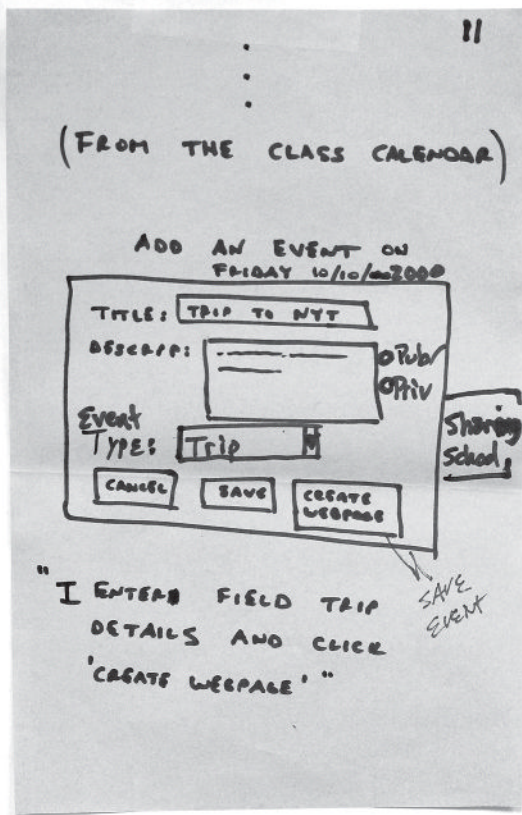 11
(FROM THE CLASS CALENDAR)
ADD AN EVENT ON
FRIDAY 10/10/2000
TITLE: TRIP TO NYT
DESCRIP:
Pub
Priv
Event
TYPE: Trip
Sharing
CANCEL SAVE CREATE
WEBPAGE
SAVE
EVENT
"I ENTER FIELD TRIP
DETAILS AND CLICK
'CREATE WEBPAGE'"